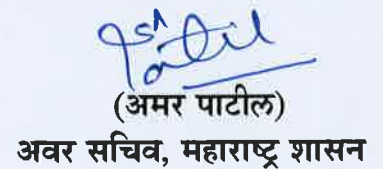 (अमर पाटील)
अवर सचिव, महाराष्ट्र शासन